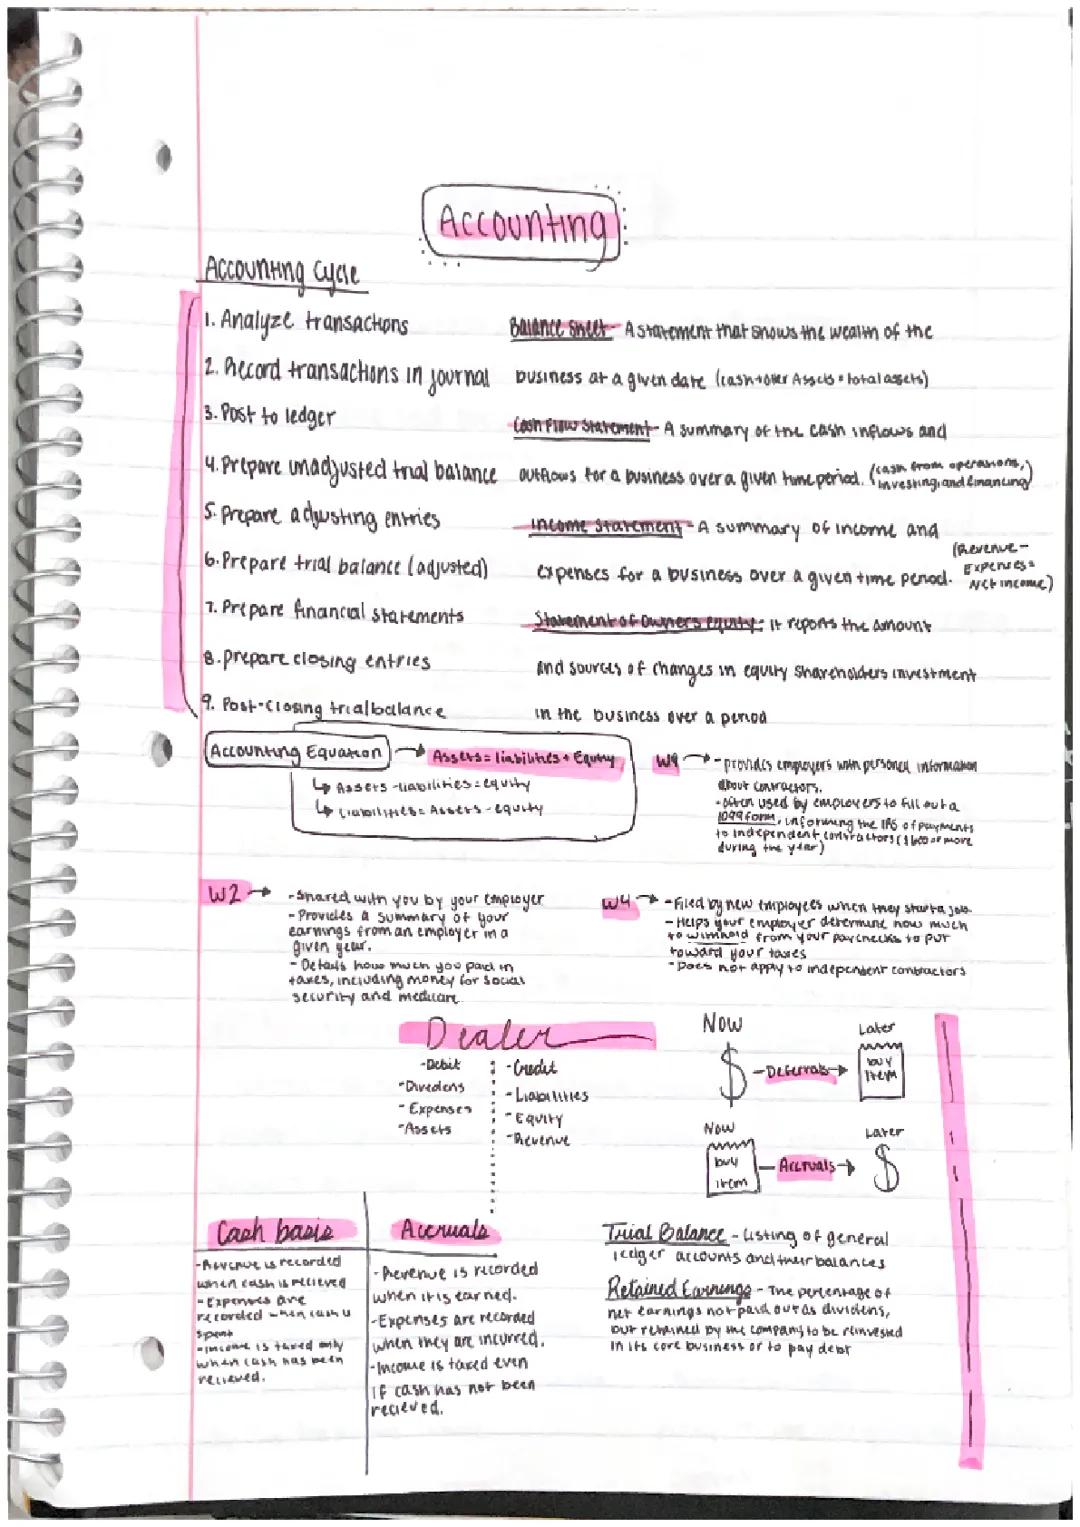 Accounting
Accounting Cycle
1. Analyze transactions
2. Record transactions in journal
3. Post to ledger
4. Prepare unadjusted trial balance
5. Prepare adjusting entries
6. Prepare trial balance (adjusted)
7. Prepare financial statements
8. prepare closing entries
9. Post-Closing trial balance
Balance Sheet - A statement that shows the wealth of the
business at a given date (cash + other Assets = total assets)
Cash Flow Statement - A summary of the cash inflows and
outflows for a business over a given time period. (cash from operations,
investing, and financing)
Income Statement - A summary of income and
expenses for a business over a given time period. (Revenue -
Expenses =
Net income)
Statement of Owner's equity: it reports the amount
and sources of changes in equity shareholders investment
in the business over a period
Accounting Equation → Assets = liabilities + Equity
↳ Assets - liabilities = equity
↳ Liabilities = Assets - equity
W9 → - provides employers with personal information
about contractors.
- often used by employers to fill out a
1099 form, informing the IRS of payments
to independent contractors ($600 or more
during the year)
W2 → - Shared with you by your employer
- Provides a summary of your
earnings from an employer in a
given year.
- Details how much you paid in
taxes, including money for social
security and medicare
W4 → - Filed by new employees when they start a job.
- Helps your employer determine how much
to withhold from your paychecks to put
toward your taxes
- Does not apply to independent contractors
Dealer
- Debit
- Dividens
- Expenses
- Assets
- Credit
- Liabilities
- Equity
- Revenue
Now
Later
$ - Deferrals →
buy
item
Now
Later
buy
item
- Accruals → $
Cash basis
- Revenue is recorded
when cash is recieved
- Expenses are
recorded when cash is
spent
- income is taxed only
when cash has been
recieved.
Accruals
- Revenue is recorded
when it is earned.
- Expenses are recorded
when they are incurred.
- Income is taxed even
if cash has not been
recieved.
Trial Balance - Listing of general
ledger accounts and their balances
Retained Earnings - The percentage of
net earnings not paid out as dividens,
but retained by the company to be reinvested
in its core business or to pay debt